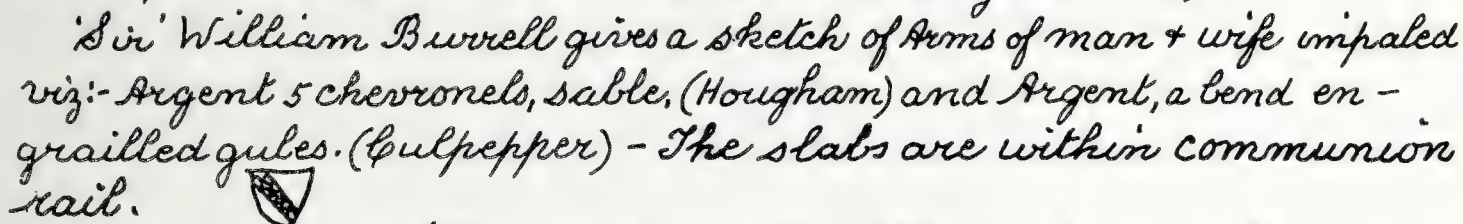 'Sir' William Burrell gives a sketch of Arms of man + wife impaled
viz:- Argent 5 chevronels, sable, (Hougham) and Argent, a bend en-
grailled gules. (Culpepper) - The slabs are within communion
rail.